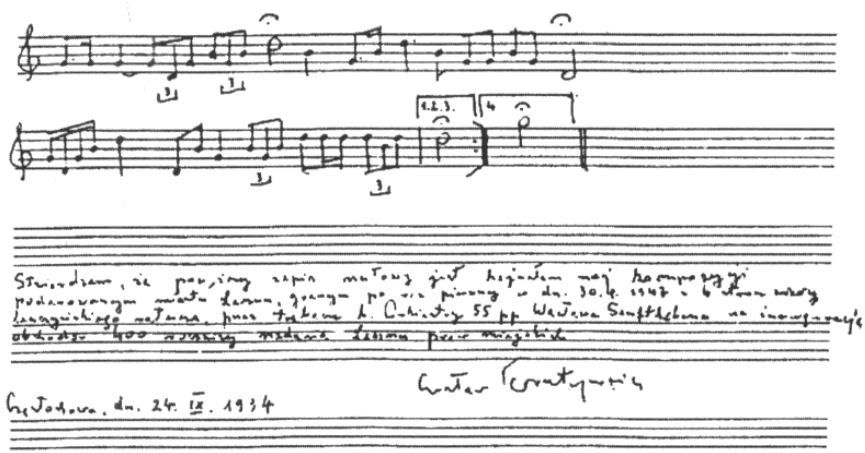 3 3
1.2.3. 4
3 3
Stwierdzam, że powyższy zapis nutowy jest hejnałem mej kompozycji
podarowanym miastu Lesznu, granym po raz pierwszy w dn. 30.4.1947 z 4 stron wieży
leszczyńskiego ratusza, przez trębacza b. Orkiestry 55 pp Wacława na inaugurację
obchodów 400 rocznicy nadania Lesznu praw miejskich
Wacław
Częstochowa, dn. 24. IX. 1934